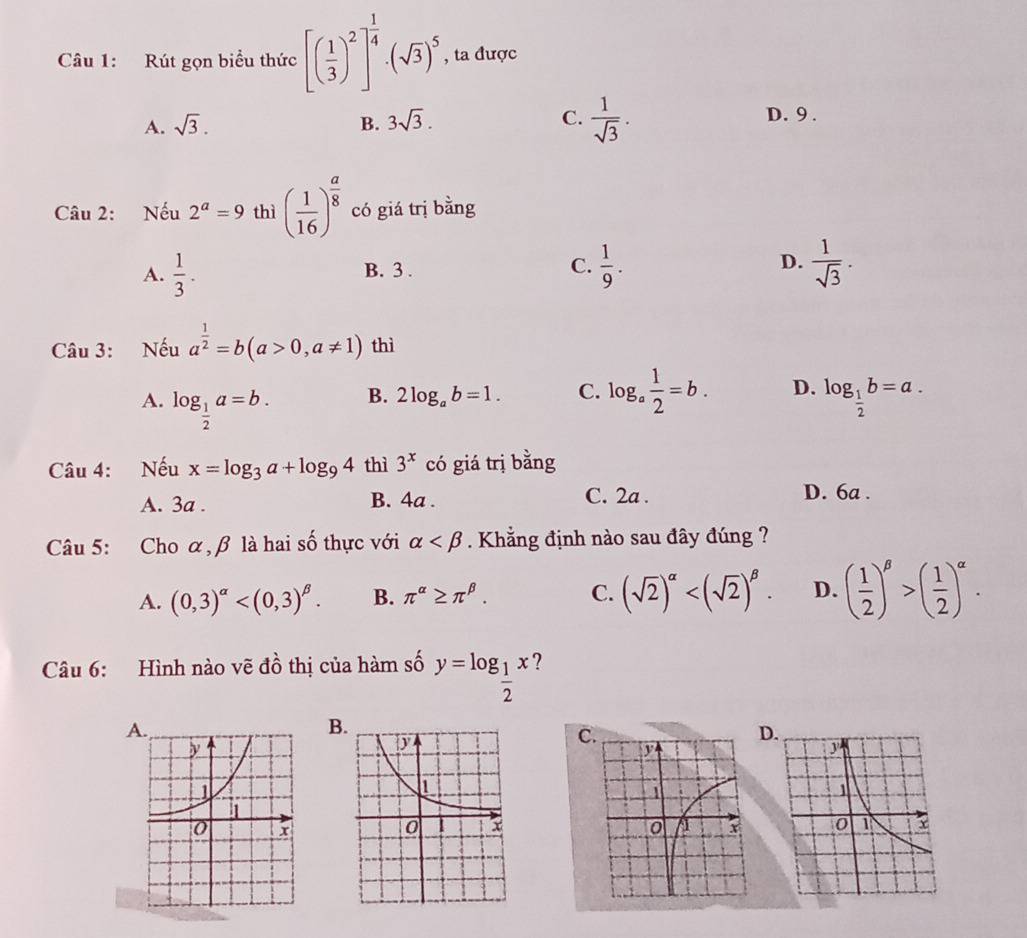 Câu 1: Rút gọn biểu thức $\left[\left(\frac{1}{3}\right)^2\right]^{\frac{1}{4}}.\left(\sqrt{3}\right)^5$, ta được
A. $\sqrt{3}$. B. $3\sqrt{3}$. C. $\frac{1}{\sqrt{3}}$. D. 9.
Câu 2: Nếu $2^a = 9$ thì $\left(\frac{1}{16}\right)^{\frac{a}{8}}$ có giá trị bằng
A. $\frac{1}{3}$. B. 3. C. $\frac{1}{9}$. D. $\frac{1}{\sqrt{3}}$.
Câu 3: Nếu $a^{\frac{1}{2}} = b(a > 0, a \neq 1)$ thì
A. $\log_{\frac{1}{2}} a = b$. B. $2\log_a b = 1$. C. $\log_a \frac{1}{2} = b$. D. $\log_{\frac{1}{2}} b = a$.
Câu 4: Nếu $x = \log_3 a + \log_9 4$ thì $3^x$ có giá trị bằng
A. 3a. B. 4a. C. 2a. D. 6a.
Câu 5: Cho $\alpha, \beta$ là hai số thực với $\alpha < \beta$. Khẳng định nào sau đây đúng ?
A. $(0,3)^\alpha < (0,3)^\beta$. B. $\pi^\alpha \geq \pi^\beta$. C. $\left(\sqrt{2}\right)^\alpha < \left(\sqrt{2}\right)^\beta$. D. $\left(\frac{1}{2}\right)^\beta > \left(\frac{1}{2}\right)^\alpha$.
Câu 6: Hình nào vẽ đồ thị của hàm số $y = \log_{\frac{1}{2}} x$?
A. B. C. D.
y y y y
1 1 1 1
1
O x O 1 x O 1 x O 1 x